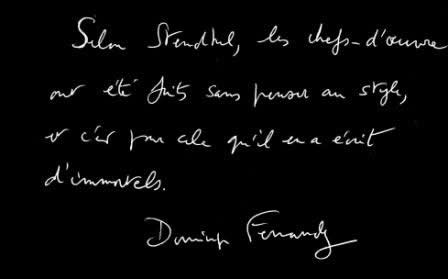 Selon Stendhal, les chefs-d'œuvre
ont été faits sans penser au style,
et c'est pour cela qu'il en a écrit
d'immortels.
Dominique Fernandez